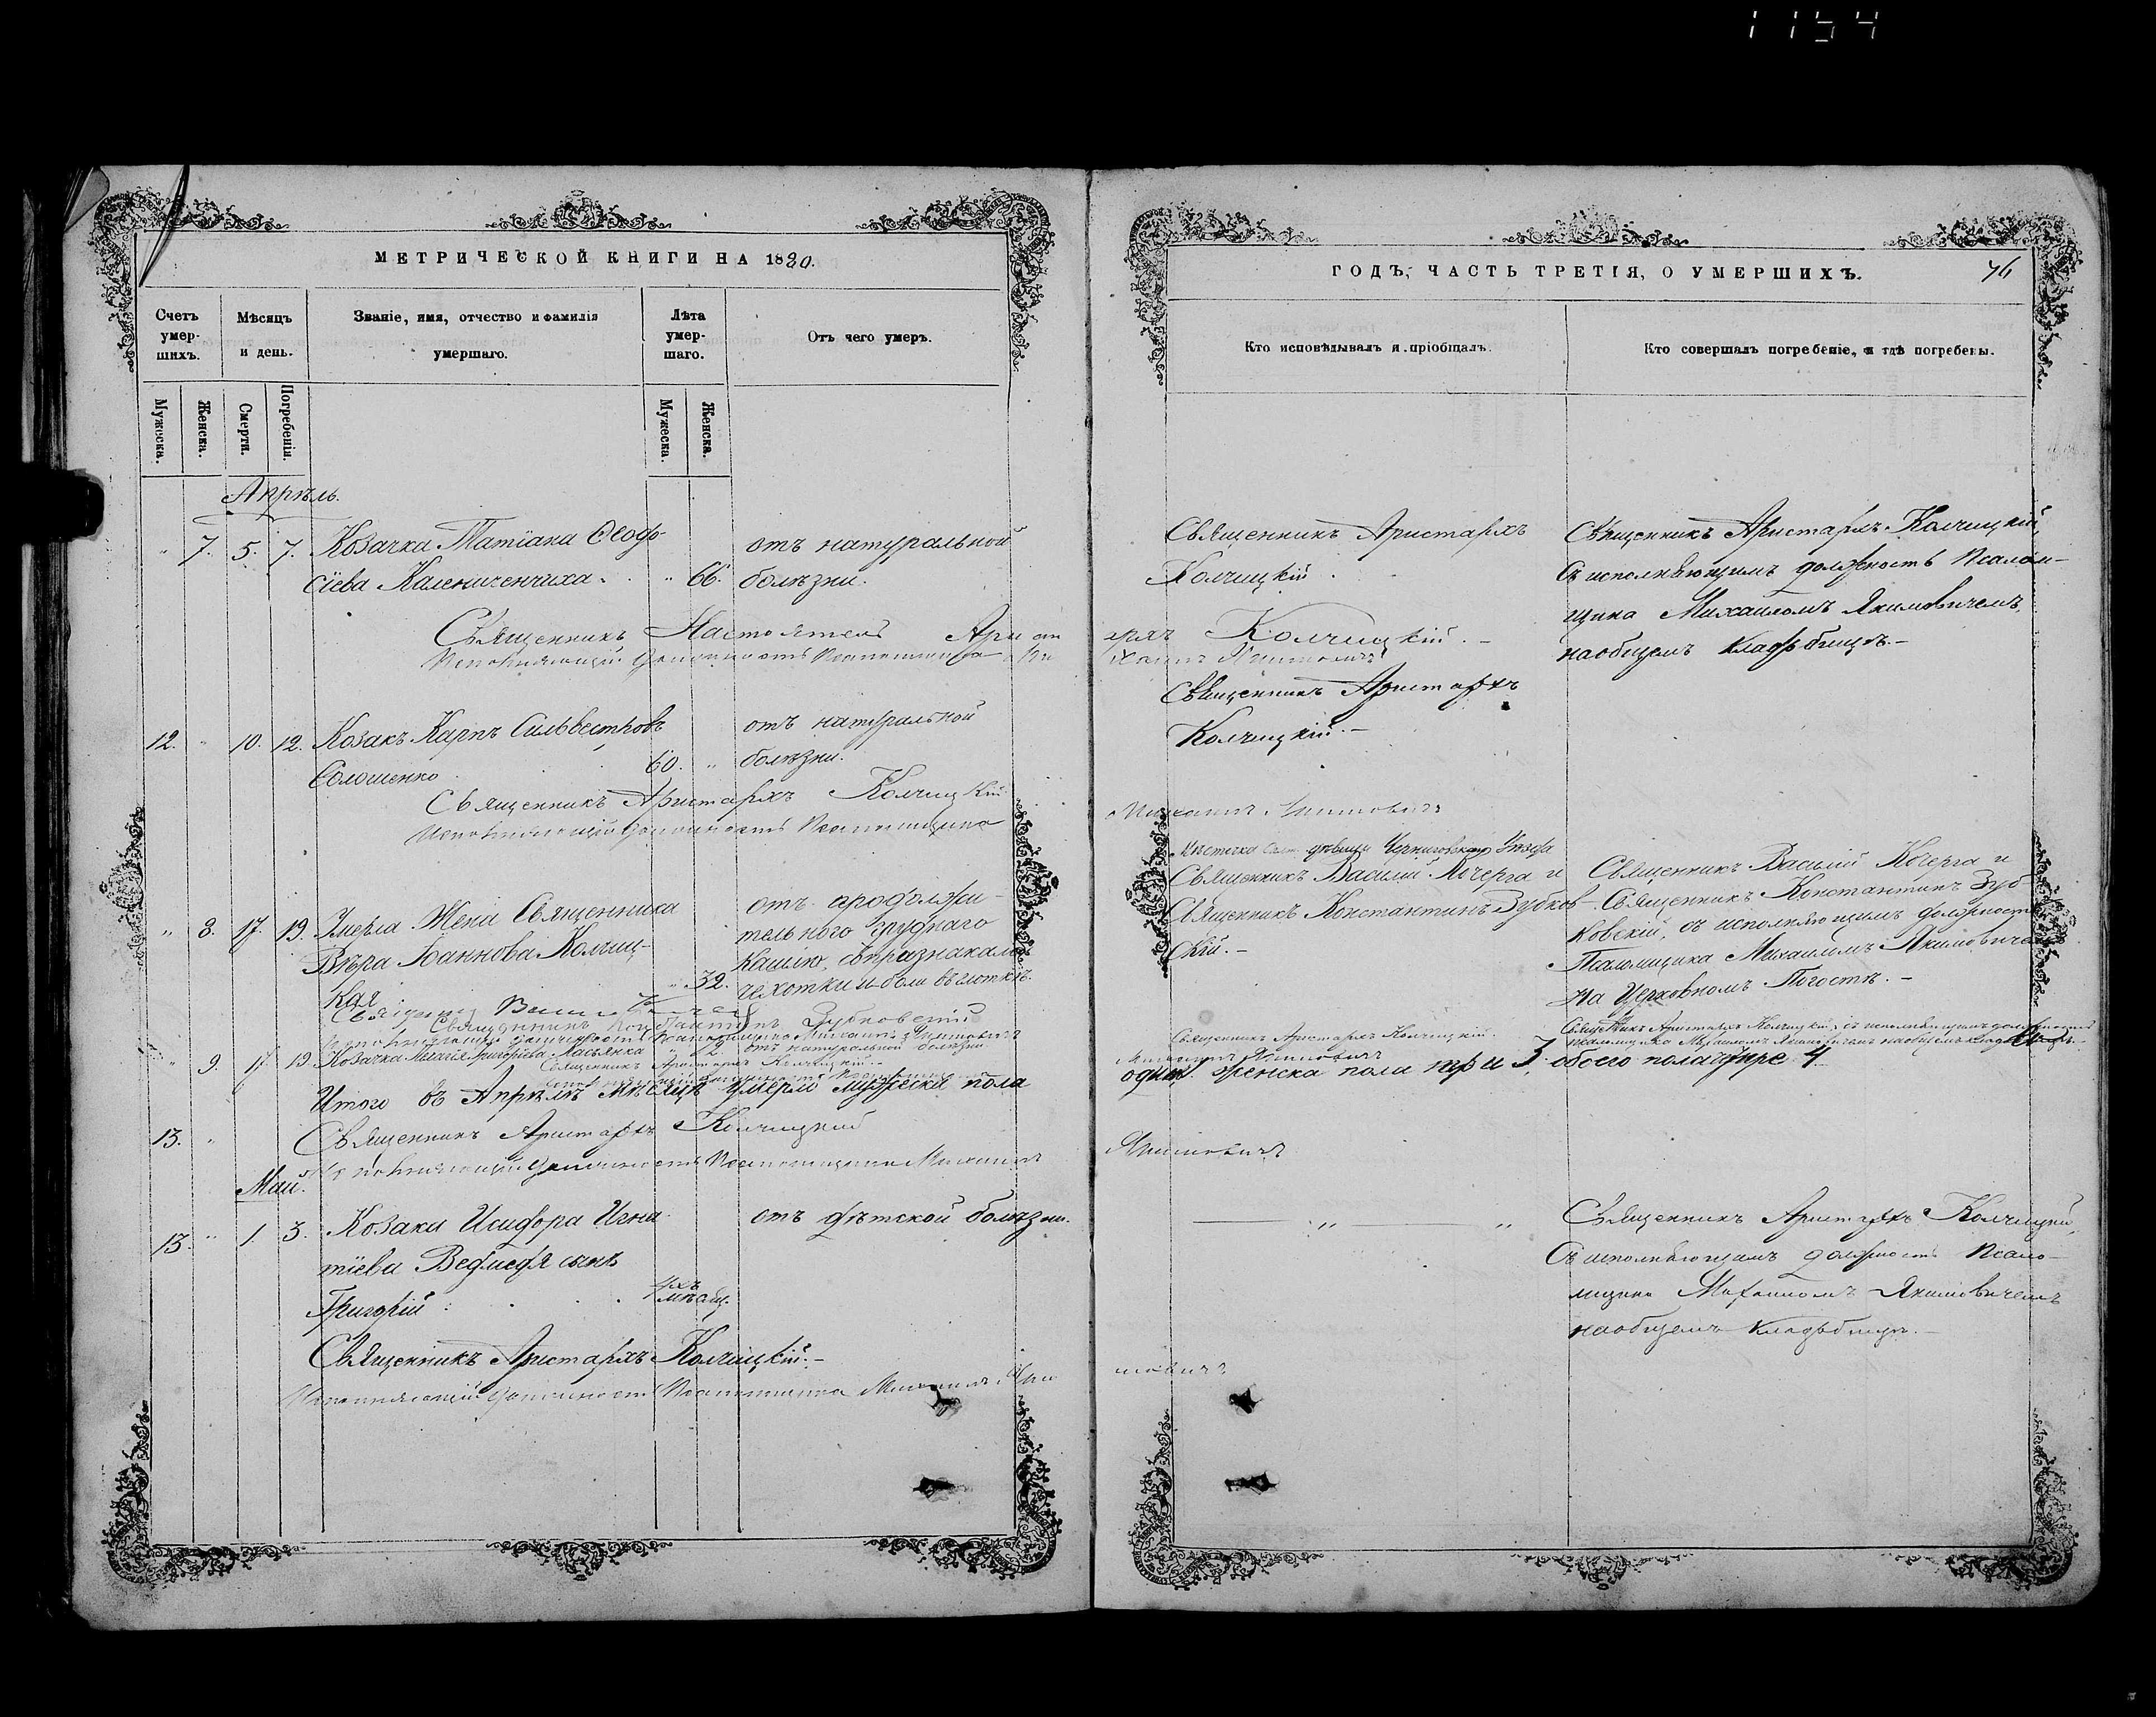 1154
МЕТРИЧЕСКОЙ КНИГИ НА 1880.
Счетъ умер-шихъ.
Мѣсяцъ и день.
Званіе, имя, отчество и фамилія умершаго.
Лѣта умер-шаго.
Отъ чего умеръ.
Мужеска.
Женска.
Смерти.
Погребенія.
Мужеска.
Женска.
Апрѣль.
" 7. 5. 7. Козачка Татіана Ѳеодо- отъ натуральной
сіева Калениченчиха. " 66. болѣзни.
Священникъ Настоятель Арист
Исполняющій должность Псаломщика
12. " 10. 12. Козакъ Карпъ Сильвестровъ отъ натуральной
Солошенко 60. " болѣзни.
Священникъ Аристархъ Колчицкій
Исполняющій должность Псаломщика
отъ продолжи-
" 8. 17. 19. Умерла Жена Священника тельного груднаго
Вѣра Іоаннова Колчиц- кашлю, съ признаками
кая " 32. чехотки и боли въ глоткѣ.
Священникъ
Священникъ Константинъ Зубковскій
Исполняющій должность Псаломщика Михаилъ Якимовичъ
" 9. 17. 19. Козачка Григоріева отъ натуральной болѣзни
Священникъ Аристархъ Колчицкій
Итого въ Апрѣлѣ мѣсяцѣ умерло мужеска пола
13. " Священникъ Аристархъ Колчицкій
Исполняющій должность Псаломщика Михаилъ
Май.
13. " 1. 3. Козака Исидора Игна- отъ дѣтской болѣзни.
тіева сынъ
Григорій мѣсяц.
Священникъ Аристархъ Колчицкій.-
Исполняющій должность Псаломщика Михаилъ Яки
ГОДЪ, ЧАСТЬ ТРЕТІЯ, О УМЕРШИХЪ.
Кто исповѣдывалъ и пріобщалъ.
Кто совершалъ погребеніе, и гдѣ погребены.
Священникъ Аристархъ
Колчицкій.
архъ Колчицкій.-
Священникъ Аристархъ Колчицкій,
съ исполняющимъ должность Псалом-
щика Михаиломъ Якимовичемъ,
на общемъ кладбищѣ.-
Священникъ Аристархъ
Колчицкій.-
Михаилъ Якимовичъ
Мѣстечка Черниговскаго Уѣзда
Священникъ Василій Кочерга и
Священникъ Константинъ Зубков-
скій.-
Священникъ Василій Кочерга и
Священникъ Константинъ Зуб-
ковскій, съ исполняющимъ должность
Псаломщика Михаиломъ Якимовичемъ
на Церковномъ Погостѣ.-
Священникъ Аристархъ Колчицкій
Священникъ Аристархъ Колчицкій, съ исполняющимъ должность
псаломщика Михаиломъ Якимовичемъ на общемъ кладбищѣ.
одинъ. женска пола три 3. обоего пола чтире 4
Якимовичъ
" "
Священникъ Аристархъ Колчицкій,
Съ исполняющимъ должность Псало-
мщика Михаиломъ Якимовичемъ
на общемъ кладбищѣ.-
мовичъ